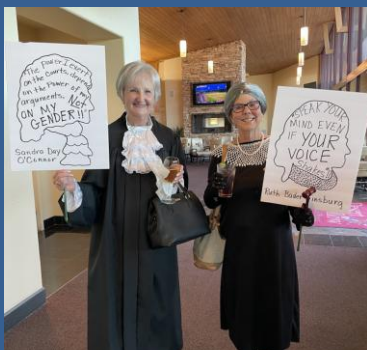 The power I exert
on the courts, depends
on the power of my
arguments. Not
ON MY
GENDER!!
Sandra Day
O'Connor
SPEAK YOUR
MIND EVEN
IF YOUR
VOICE
Shakes!
Ruth Bader Ginsburg